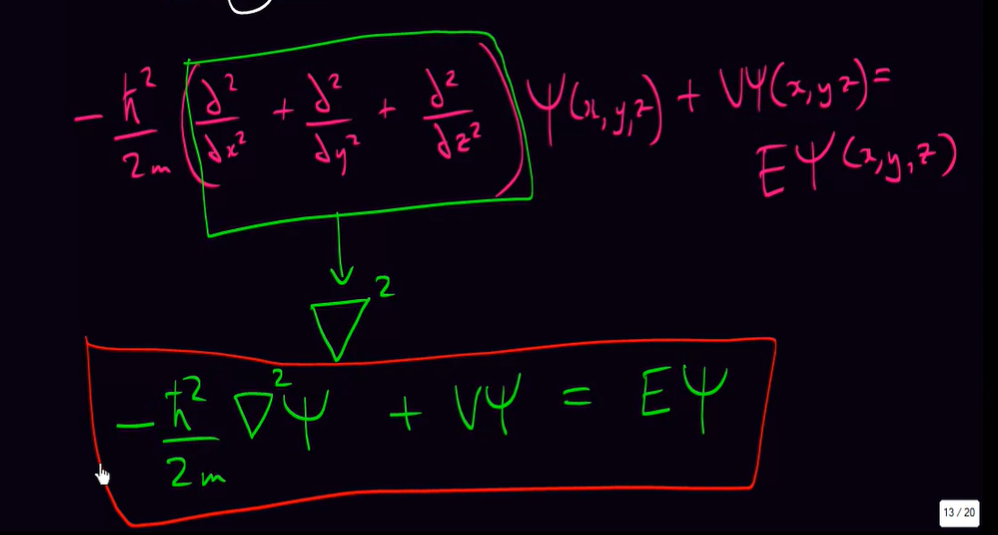 -ħ²/2m (∂²/∂x² + ∂²/∂y² + ∂²/∂z²) Ψ(x,y,z) + VΨ(x,y z) =
EΨ(x,y,z)
∇²
-ħ²/2m ∇²Ψ + VΨ = EΨ
13 / 20